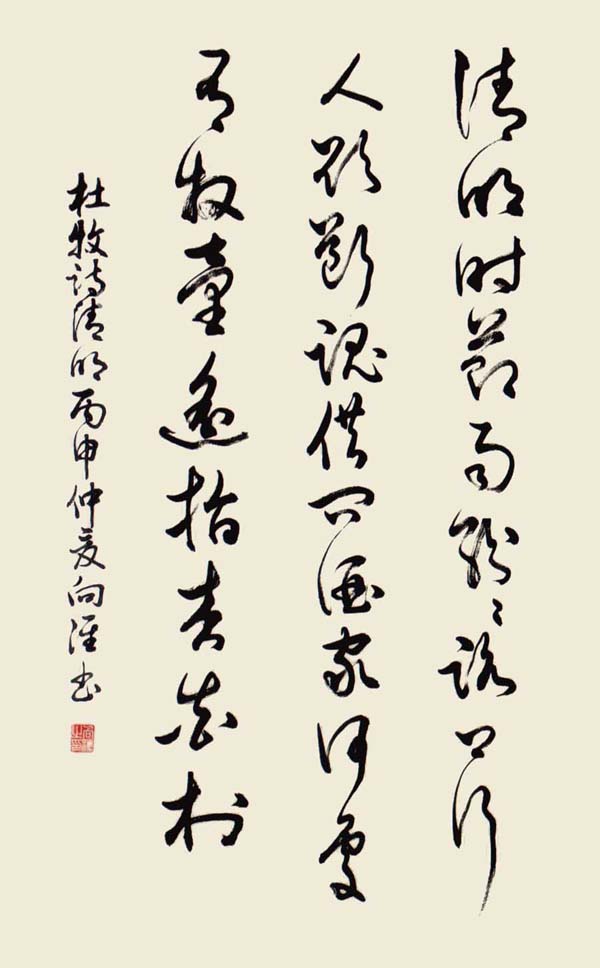 清明时节雨纷々路上行
人欲断魂借问酒家何处
有牧童遥指杏花村
杜牧诗清明丙申仲夏向淮书